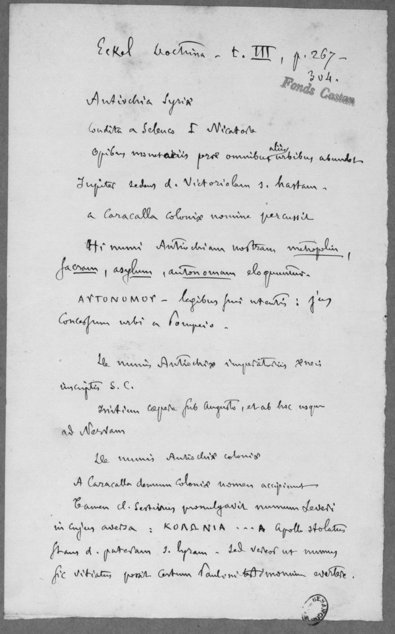 Eckel Doctrina - t. III, p. 267-
304.
Fonds Castan
Antiochia Syriæ
Condita a Seleuco I Nicatore
Opibus monetariis præ omnibus aliis urbibus abundat
Jupiter sedens d. Victoriolam s. hastam -
a Caracalla coloniæ nomine percussit
Hi numi Antiochiam nostram metropolin,
sacram, asylum, autonomam eloquuntur.
ΑΥΤΟΝΟΜΟΥ - legibus suis utentis : jus
concessum urbi a Pompeio -
De numis Antiochiæ imperatoriis æneis
inscriptis S. C.
Initium cæpere sub Augusto, et ab hoc usque
ad Nervam
De numis Antiochiæ coloniæ
A Caracalla demum Coloniæ nomen accipiunt
Tamen cl. Sestinius promulgavit numum Severi
in cujus aversa : ΚΟΛΩΝΙΑ ---- A Apollo stolatus
stans d. pateram s. lyram - Sed vereor ut numus
sic vitiatus possit certum Paulini testimonium evertere.